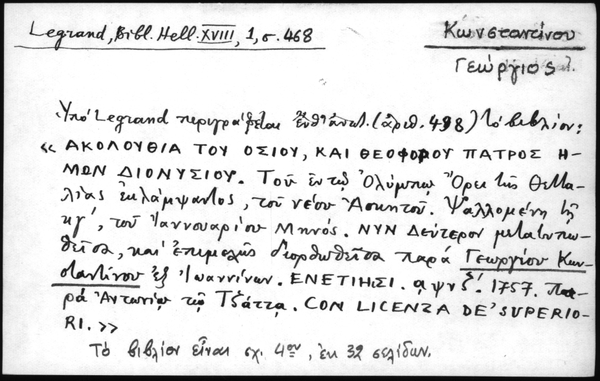 Legrand, Bibl. Hell. XVIII, 1, σ. 468
Κωνσταντίνου
Γεώργιος
Ὑπό Legrand περιγράφεται (ἀριθ. 498) τό βιβλίον:
« ΑΚΟΛΟΥΘΙΑ ΤΟΥ ΟΣΙΟΥ, ΚΑΙ ΘΕΟΦΟΡΟΥ ΠΑΤΡΟΣ Η-
ΜΩΝ ΔΙΟΝΥΣΙΟΥ. Τοῦ ἐν τῷ Ὀλύμπῳ Ὄρει τῆς Θετ-
λίας ἐκλάμψαντος, τοῦ νέου Ἀσκητοῦ. Ψαλλομένη τῇ
κγ', τοῦ Ἰαννουαρίου Μηνός. ΝΥΝ Δεύτερον μετατυπω-
θεῖσα, καί ἐπιμελῶς διορθωθεῖσα παρά Γεωργίου Κων-
σταντίνου ἐξ Ἰωαννίνων. ΕΝΕΤΙΗΣΙ. αψνζ'. 1757. Πα-
ρά Ἀντωνίῳ τῷ Τζάττα. CON LICENZA DE' SUPERIO-
RI. >>
Τό βιβλίον εἶναι σχ. 4ον, ἐκ 32 σελίδων.